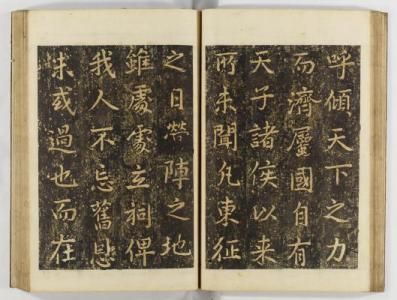 呼傾天下之力
而濟屬國自有
天子諸侯以来
所未聞凡東征
之日營陣之地
雖處處立祠俾
我人不忘舊恩
未或過也而在